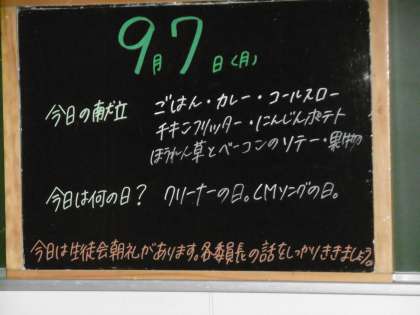 9月7日(月)
今日の献立 ごはん・カレー・コールスロー
チキンフリッター・にんじんポテト
ほうれん草とベーコンのソテー・果物
今日は何の日? クリーナーの日。CMソングの日。
今日は生徒会朝礼があります。各委員長の話をしっかりききましょう。